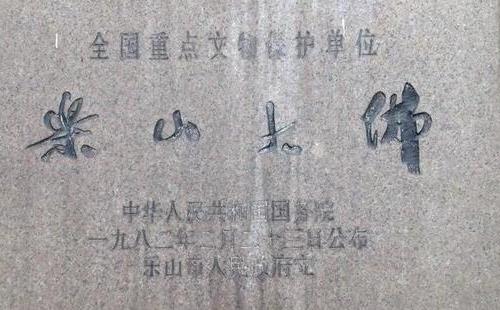 全国重点文物保护单位
乐山大佛
中华人民共和国国务院
一九八二年二月二十三日公布
乐山市人民政府立